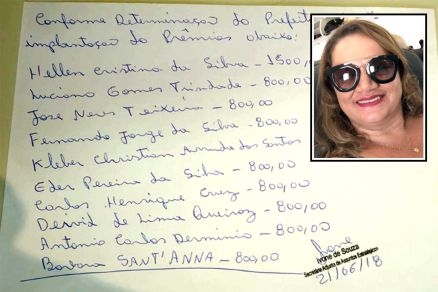 Conforme Determinação do Prefeito
implantação do Prêmios abaixo:
Hellen Cristina da Silva - 1500,
Luciano Gomes Trindade - 800,00
Jose Neves Teixeira - 800,00
Fernando Jorge da Silva - 800,00
Kleber Christian Arruda dos Santos
Eder Pereira da Silva - 800,00
Carlos Henrique Cruz - 800,00
Deivid de Lima Queiroz - 800,00
Antonio Carlos Derminio - 800,00
Barbara SANT'ANNA - 800,00
Ivone
Ivone de Souza
Secretária Adjunta de Assuntos Estratégicos
21/06/18